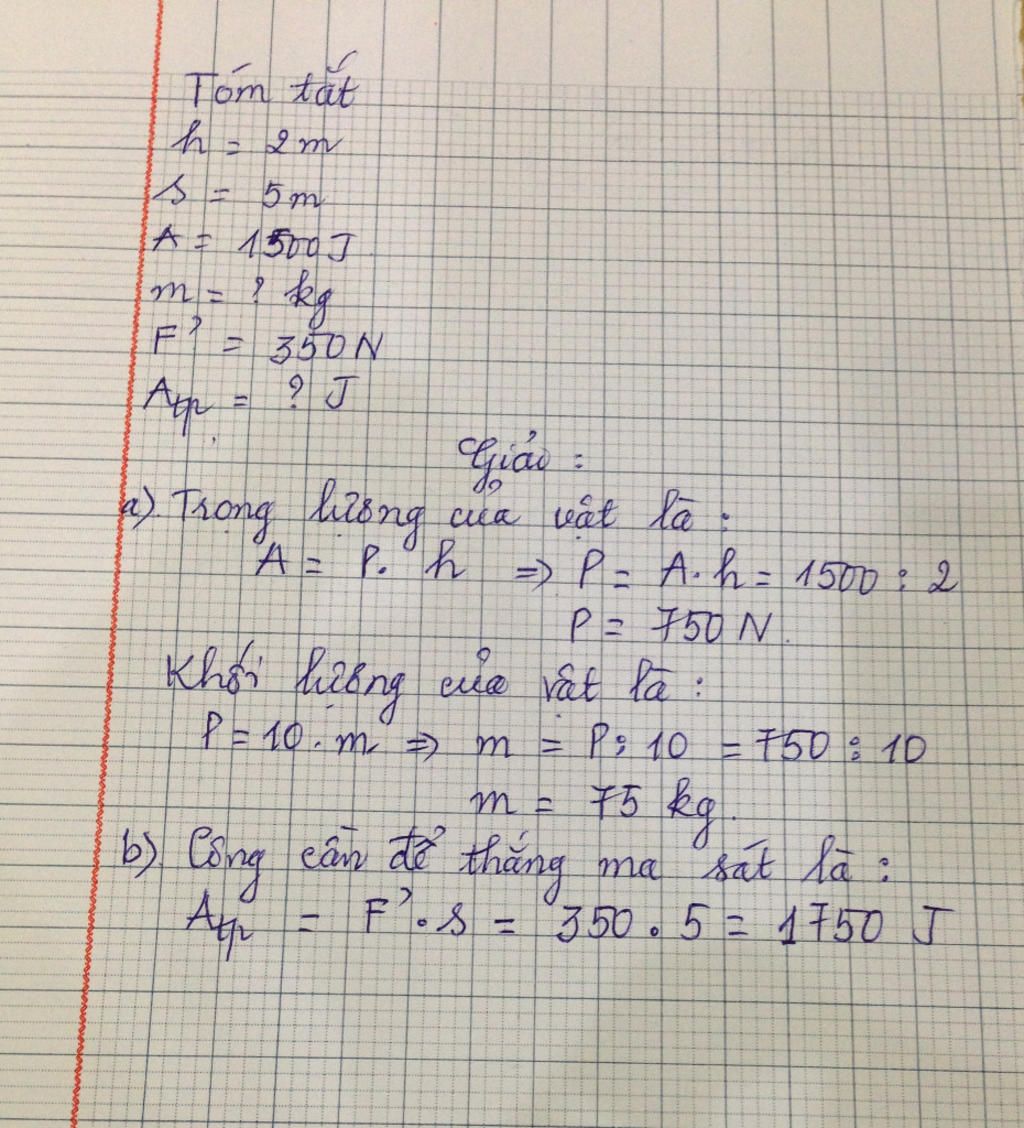 Tóm tắt
h = 2m
s = 5m
A = 1500J
m = ? kg
F' = 350N
Atp = ? J
Giải :
a) Trọng lượng của vật là :
A = P. h => P = A. h = 1500 : 2
P = 750 N.
Khối lượng của vật là :
P = 10 . m => m = P : 10 = 750 : 10
m = 75 kg.
b) Công cần để thắng ma sát là :
Atp = F' . s = 350 . 5 = 1750 J